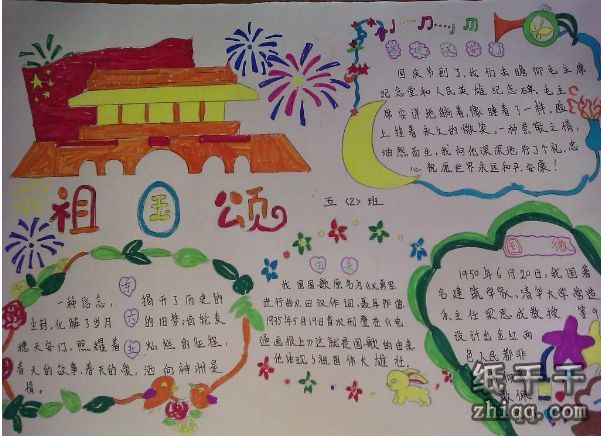 祖国颂
五〈2〉班
国庆节到了,我们去瞻仰毛主席
纪念堂和人民英雄纪念碑,毛主
席安详地躺着,像睡着了一样,脸
上挂着永久的微笑,一种崇敬之情,
油然而生,我向他深深地行了个礼,忠
心祝愿世界永远和平安康!
一种信念,
揭开了历史的
尘封,化解了岁月
的旧梦;
穗天安门,照耀着
灿烂的
春天的故事春天的爱,
向神州是
情。
由来
我国国歌原名为《义勇军
进行曲》,田汉作词,聂耳作曲,
1935年5月19日首次刑
在《电
通画报上》,这就是国歌的由来
他体现了祖国伟大雄壮。
国徽
1950年6月20日,我国著
名建筑学家,清华大学营造
系主任梁思成教授
第9
设计出金红两
色人民都
纸千千
zhiqq.com